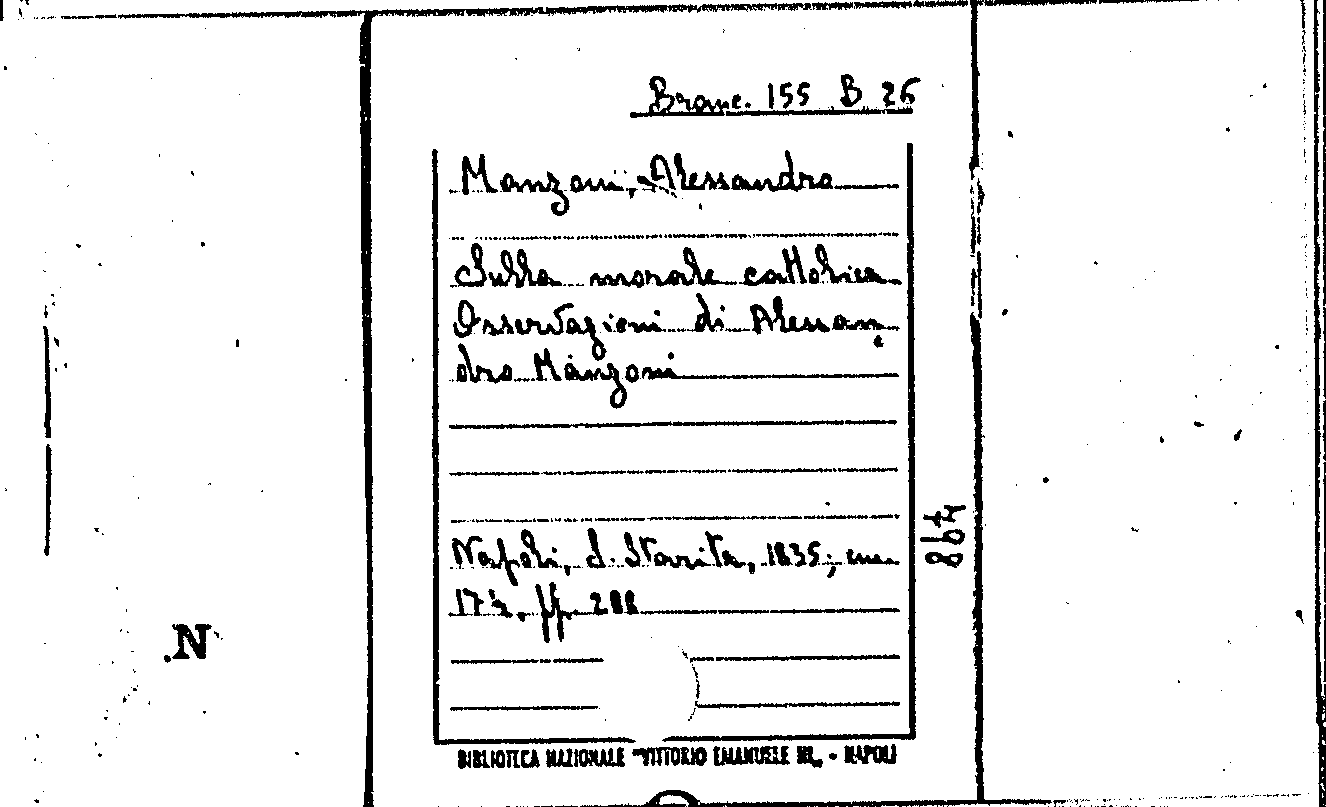 Branc. 155 B 26
Manzoni, Alessandro
Sulla morale cattolica
Osservazioni di Alessan
dro Manzoni
Napoli, S. Starita, 1835; cm.
17½. pp. 288
BIBLIOTECA NAZIONALE "VITTORIO EMANUELE III" - NAPOLI
N